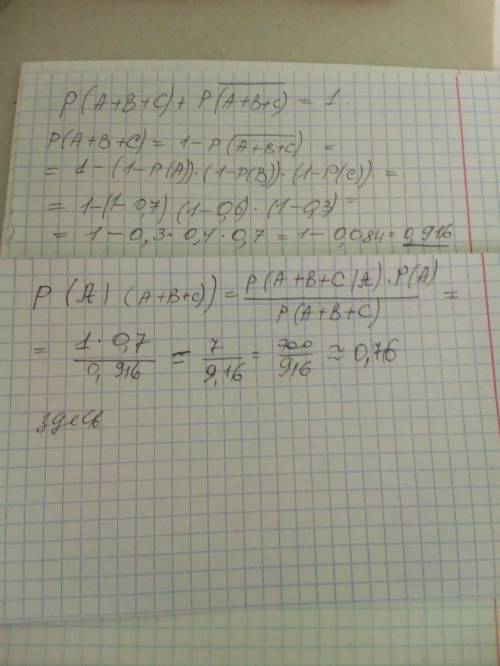 P(A+B+C) + P(\overline{A+B+C}) = 1.
P(A+B+C) = 1 - P(\overline{A+B+C}) =
= 1 - (1-P(A))·(1-P(B))·(1-P(C)) =
= 1-(1-0,7)(1-0,6)·(1-0,3) =
= 1 - 0,3·0,4·0,7 = 1 - 0,084 = 0,916
P(A|(A+B+C)) = \frac{P(A+B+C|A)·P(A)}{P(A+B+C)} =
= \frac{1·0,7}{0,916} = \frac{7}{9,16} = \frac{700}{916} ≈ 0,76
здесь